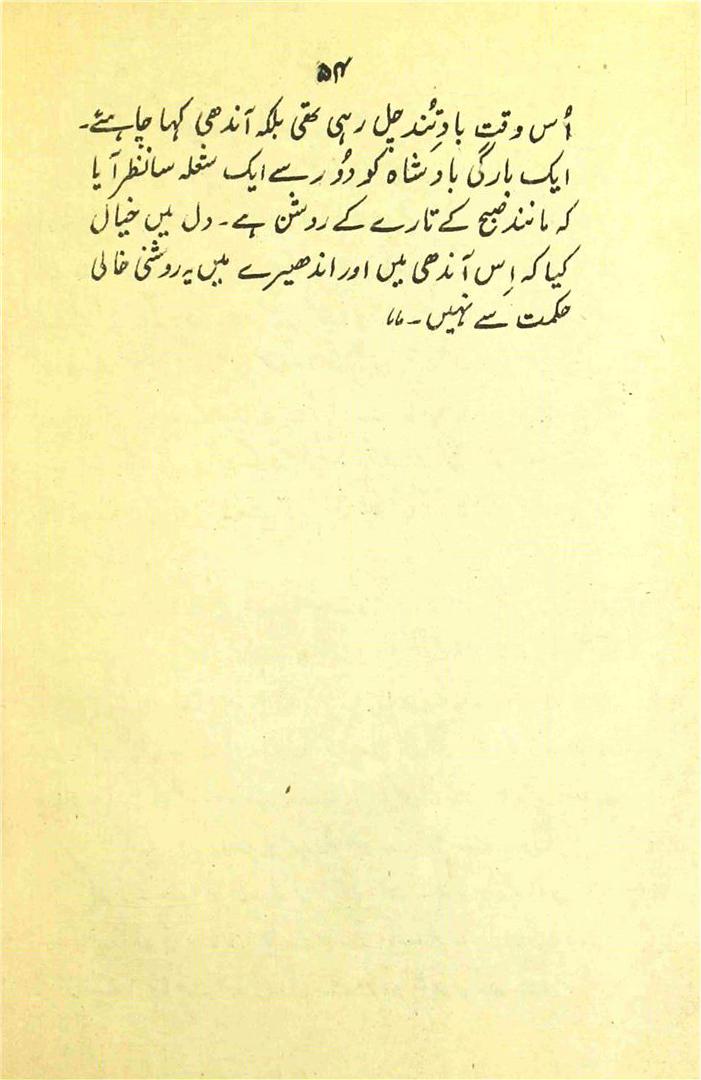 ۵۴
اُس وقت بادِ تُند چل رہی تھی بلکہ آندھی کہا چاہئے۔
ایک بارگی بادشاہ کو دُور سے ایک شعلہ سا نظر آیا
کہ مانند صُبح کے تارے کے روشن ہے۔ دل میں خیال
کیا کہ اِس آندھی میں اور اندھیرے میں یہ روشنی خالی
حکمت سے نہیں۔